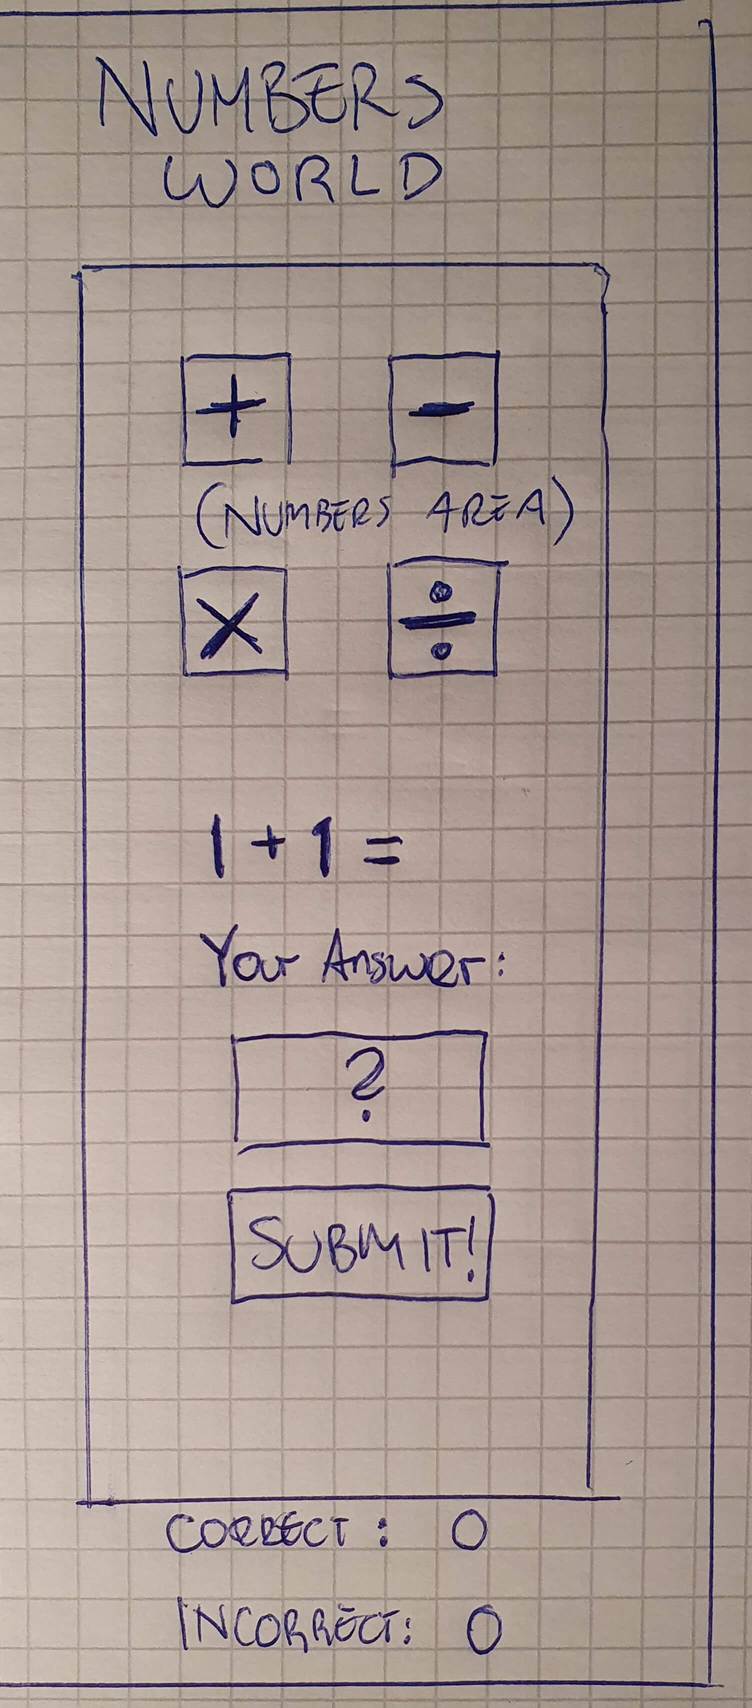 NUMBERS
WORLD
+ -
(NUMBERS AREA)
× ÷
1 + 1 =
Your Answer:
?
SUBMIT!
CORRECT: 0
INCORRECT: 0